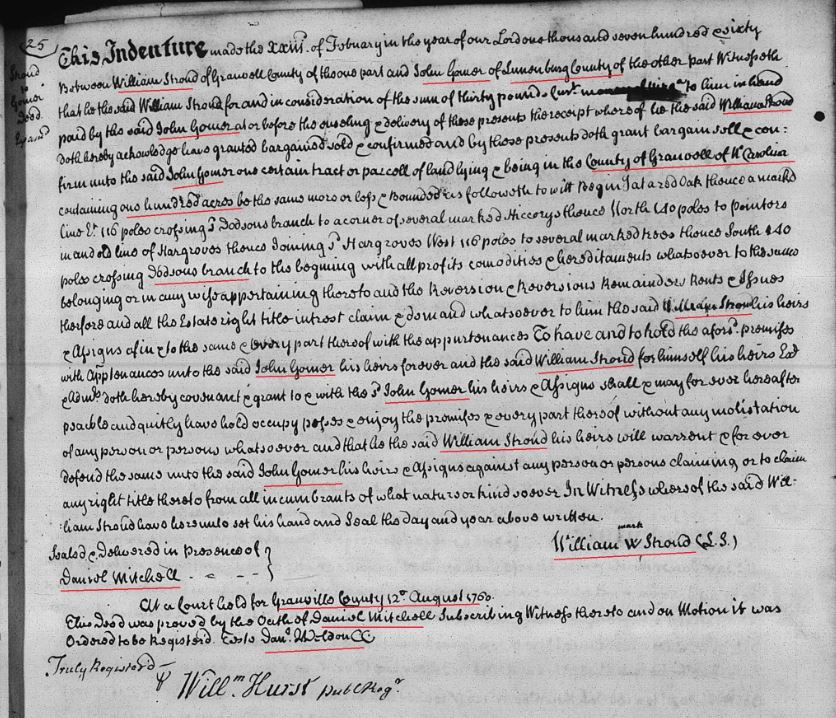 25
Stroud
to
Gomer
Deed
This Indenture made the xxiii. of Febuary in the year of our Lord one thousand seven hundred & sixty
Between William Stroud of Granvell County of the one part and John Gomer of Lunenburg County of the other part Witnesseth
that he the said William Stroud for and in consideration of the sum of thirty pounds Curt. money to him in hand
paid by the said John Gomer at or before the ensealing & delivery of these presents the receipt where of he the said William Stroud
doth hereby acknowledge have granted bargained sold & confirmed and by these presents doth grant bargain sell & con:
firm unto the said John Gomer one certain tract or parcell of land lying & being in the County of Granvell of No. Carolina
containing one hundred acres be the same more or less & Bounded as followeth to witt Begin Jat a red Oak thence a markd
line Et. 116 poles crossing sd. Dodsons branch to a corner of several marked Hiccorys thence North 140 poles to pointers
in and old line of Hargroves thence Joining sd. Hargroves West 116 poles to several marked trees thence South 140
poles crossing Dodsons branch to the begining with all profits comodities & hereditaments whatsoever to the same
belonging or in any wise appertaining thereto and the Reversion & Reversions Remainders Rents & Issues
therfore and all the Estate right title intrest claim & demand whatsoever to him the said William Stroud his heirs
& Assigns of in & to the same & every part thereof with the appurtenances To have and to hold the aforsd. premises
with Apptenances unto the said John Gomer his heirs forever and the said William Stroud for himself his heirs Exd
& Admrs doth hereby covenant & grant to & with the sd. John Gomer his heirs & Assigns shall & may for ever hereafter
peacable and quitly have hold occupy posses & enjoy the premises & every part thereof without any molistation
of any person or persons whatsoever and that he the said William Stroud his heirs will warrent & for over
defend the same unto the said John Gomer his heirs & Assigns against any person or persons claiming or to claim
any right title thereto from all incumbrants of what nature or kind soever In Witness whereof the said Wil-
:liam Stroud have here unto set his hand and Seal the day and year above written.
Sealed & Delivered in Presence of
mark
William W Stroud (L.S.)
Daniel Mitchell
At a Court held for Granville County 12o. August 1760.
This Deed was proved by the Oath of Daniel Mitchell Subscribing Witness thereto and on Motion it was
Ordered to be Registerd. Teste Danl. Weldon CC
Truly Registerd
Willm. Hurst Pub. Regr.